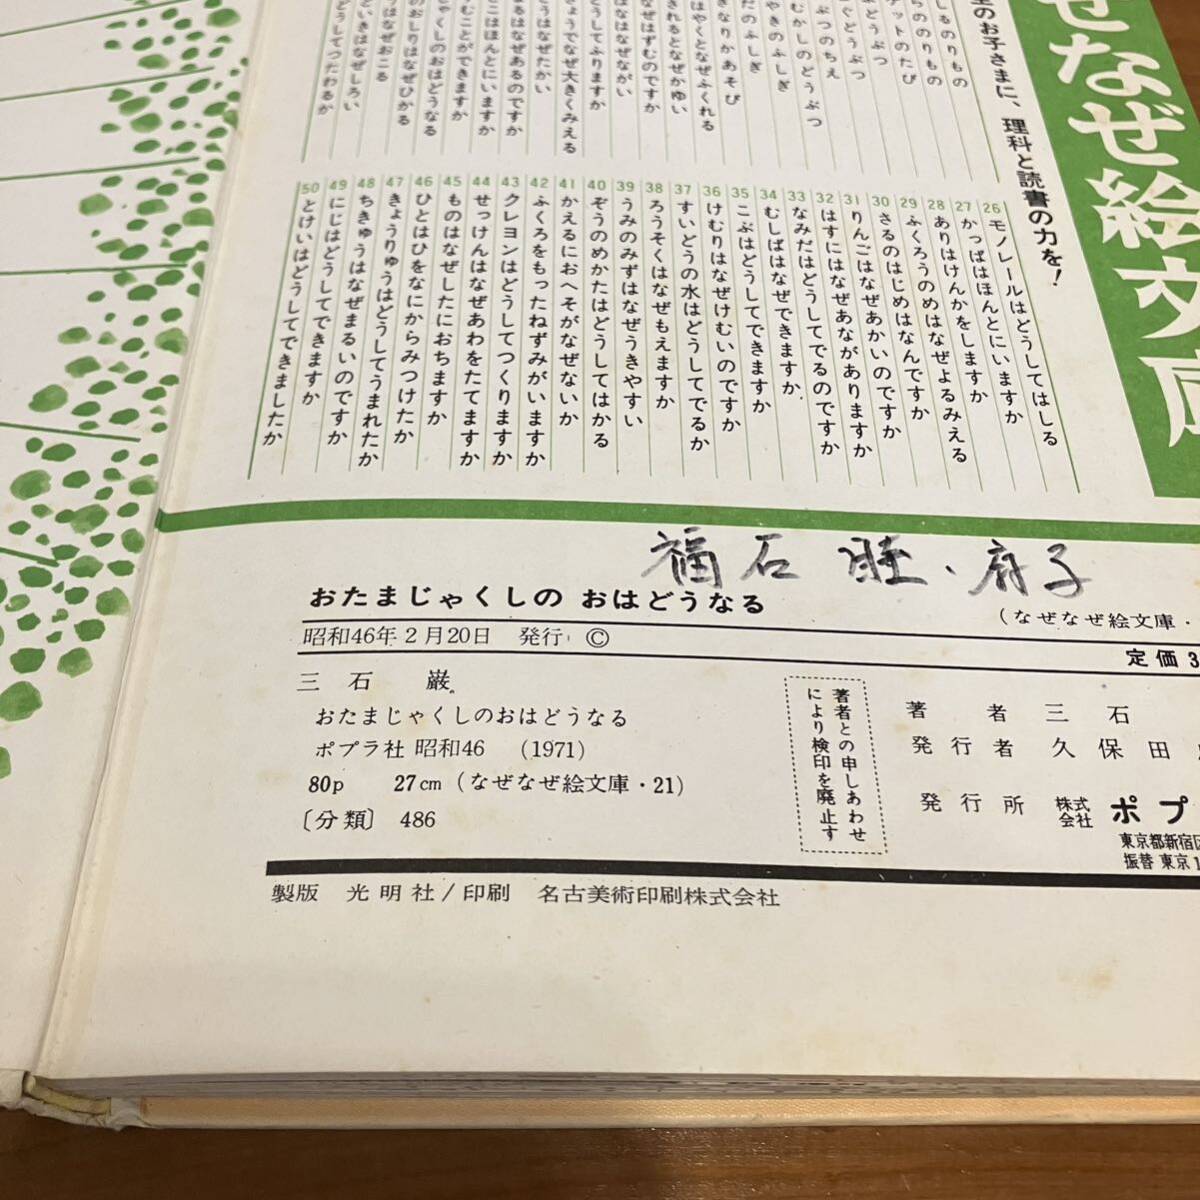 なぜ絵文庫
のお子さまに、理科と読書の力を!
しるのりもの
らののりもの
ケットのたび
ぶつのちえ
むかしのどうぶつ
やきのふしぎ
だのふしぎ
きなりかあそび
はやくとなぜふくれる
されるとなぜかゆい
なぜはずむのですか
はなはなぜながい
どうしてふりますか
きょうでなぜ大きくみえる
うはなぜたかい
まるはなぜあるのですか
こはほんとにいますか
むことができますか
ゃくしのおはどうなる
のおしりはなぜひかる
うはなぜおこる
といきはなぜしろい
どうしてつたわるか
26 モノレールはどうしてはしる
27 かっぱはほんとにいますか
28 ありはけんかをしますか
29 ふくろうのめはなぜよるみえる
30 さるのはじめはなんですか
31 りんごはなぜあかいのですか
32 はすにはなぜあながありますか
33 なみだはどうしてでるのですか
34 むしばはなぜできますか
35 こぶはどうしてできますか
36 けむりはなぜけむいのですか
37 すいどうの水はどうしてでるか
38 ろうそくはなぜもえますか
39 うみのみずはなぜうきやすい
40 ぞうのめかたはどうしてはかる
41 かえるにおへそがなぜないか
42 ふくろをもったねずみがいますか
43 クレヨンはどうしてつくりますか
44 せっけんはなぜあわをたてますか
45 ものはなぜしたにおちますか
46 ひとはひをなにからみつけたか
47 きょうりゅうはどうしてうまれたか
48 ちきゅうはなぜまるいのですか
49 にじはどうしてできますか
50 とけいはどうしてできましたか
福石 睦・府子
おたまじゃくしの おはどうなる
(なぜなぜ絵文庫・
昭和46年2月20日 発行 ©
定価3
三石 巌
おたまじゃくしのおはどうなる
ポプラ社 昭和46 (1971)
80p 27cm (なぜなぜ絵文庫・21)
〔分類〕 486
著者との申しあわせ
により検印を廃止す
著者 三石
発行者 久保田
発行所 株式会社 ポプ
東京都新宿区
振替 東京1
製版 光明社/印刷 名古美術印刷株式会社